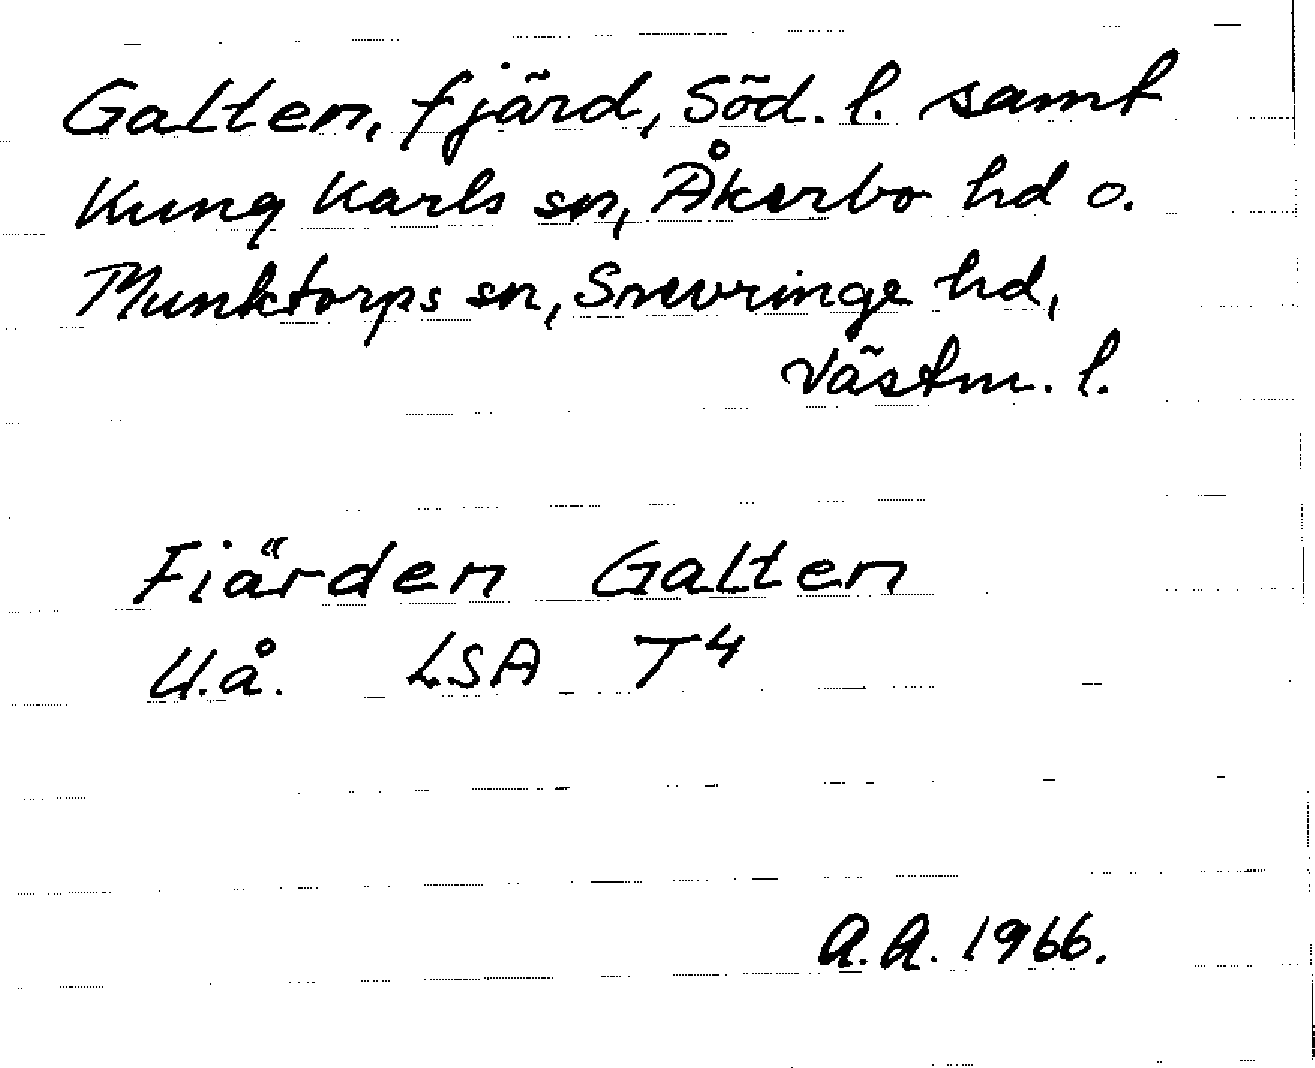 Galten, fjärd, Söd. l. samt
Kung Karls sn, Åkerbo hd o.
Munktorps sn, Snevringe hd,
Västm. l.
Fiärden Galten
U.å. LSA T4
A.A. 1966.